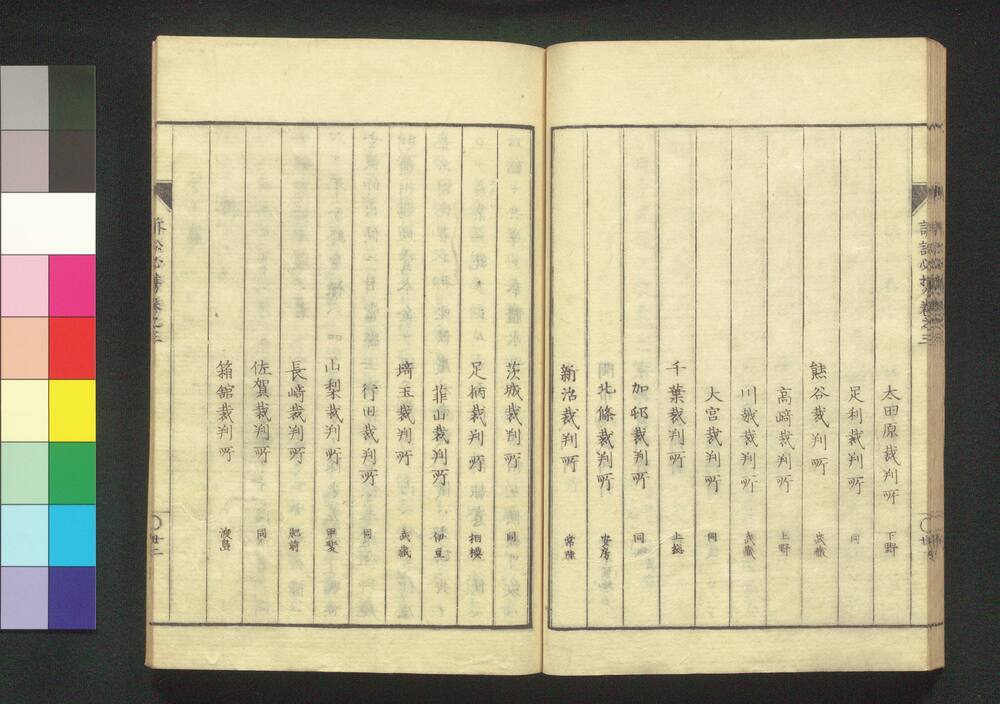 太田原裁判所 下野
足利裁判所 同
熊谷裁判所 武蔵
高﨑裁判所 上野
川越裁判所 武蔵
大宮裁判所 同
千葉裁判所 上総
加邨裁判所 同
北條裁判所 安房
新治裁判所 常陸
茨城裁判所 同
足柄裁判所 相模
韮山裁判所 伊豆
埼玉裁判所 武蔵
行田裁判所 同
山梨裁判所 甲斐
長﨑裁判所 肥前
佐賀裁判所 同
箱舘裁判所 渡島
訴訟必携卷之三
廿二